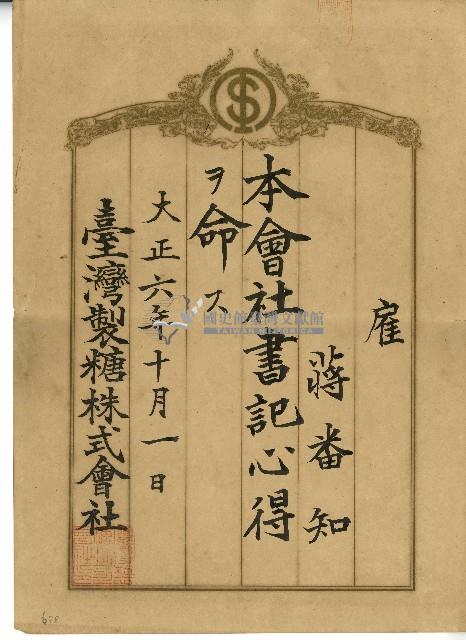 雇
蔣番知
本會社書記心得
ヲ命ス
大正六年十月一日
臺灣製糖株式會社
國史館臺灣文獻館
TAIWAN HISTORICA
698